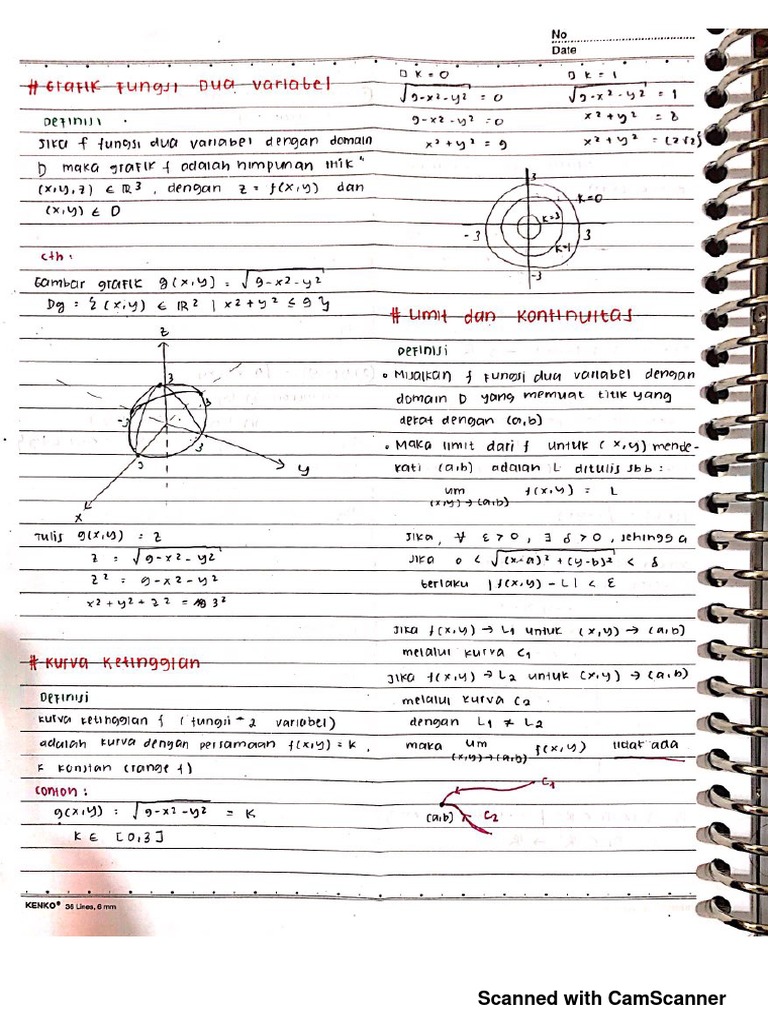 No
Date
# Grafik Fungsi Dua Variabel
Definisi
Jika f fungsi dua variabel dengan domain
D maka grafik f adalah himpunan titik"
(x,y,z) ∈ ℝ³, dengan z = f(x,y) dan
(x,y) ∈ D
cth:
Gambar grafik g(x,y) = √(9-x²-y²)
Dg = {(x,y) ∈ ℝ² | x²+y² ≤ 9}
z
3
-3
3
3
3
y
x
Tulis g(x,y) = z
z = √(9-x²-y²)
z² = 9-x²-y²
x²+y²+z² = 3²
# Kurva Ketinggian
Definisi
Kurva ketinggian f (fungsi 2 variabel)
adalah kurva dengan persamaan f(x,y) = k,
k konstan (range f)
Contoh:
g(x,y) : √(9-x²-y²) = k
k ∈ [0,3]
k = 0
√(9-x²-y²) = 0
9-x²-y² = 0
x²+y² = 9
k = 1
√(9-x²-y²) = 1
x²+y² = 8
x²+y² = (2√2)²
3
k=0
k=3
-3
3
k=1
-3
# Limit dan Kontinuitas
Definisi
• Misalkan f fungsi dua variabel dengan
domain D yang memuat titik yang
dekat dengan (a,b)
• Maka limit dari f untuk (x,y) mende-
kati (a,b) adalah L ditulis sbb:
lim f(x,y) = L
(x,y)→(a,b)
Jika, ∀ ε>0, ∃ δ>0, sehingga
Jika 0 < √((x-a)²+(y-b)²) < δ
berlaku |f(x,y) - L| < ε
Jika f(x,y) → L1 untuk (x,y) → (a,b)
melalui kurva C1
Jika f(x,y) → L2 untuk (x,y) → (a,b)
melalui kurva C2
dengan L1 ≠ L2
maka lim f(x,y) tidak ada
(x,y)→(a,b)
C1
(a,b)
C2
KENKO® 36 Lines, 6 mm
Scanned with CamScanner